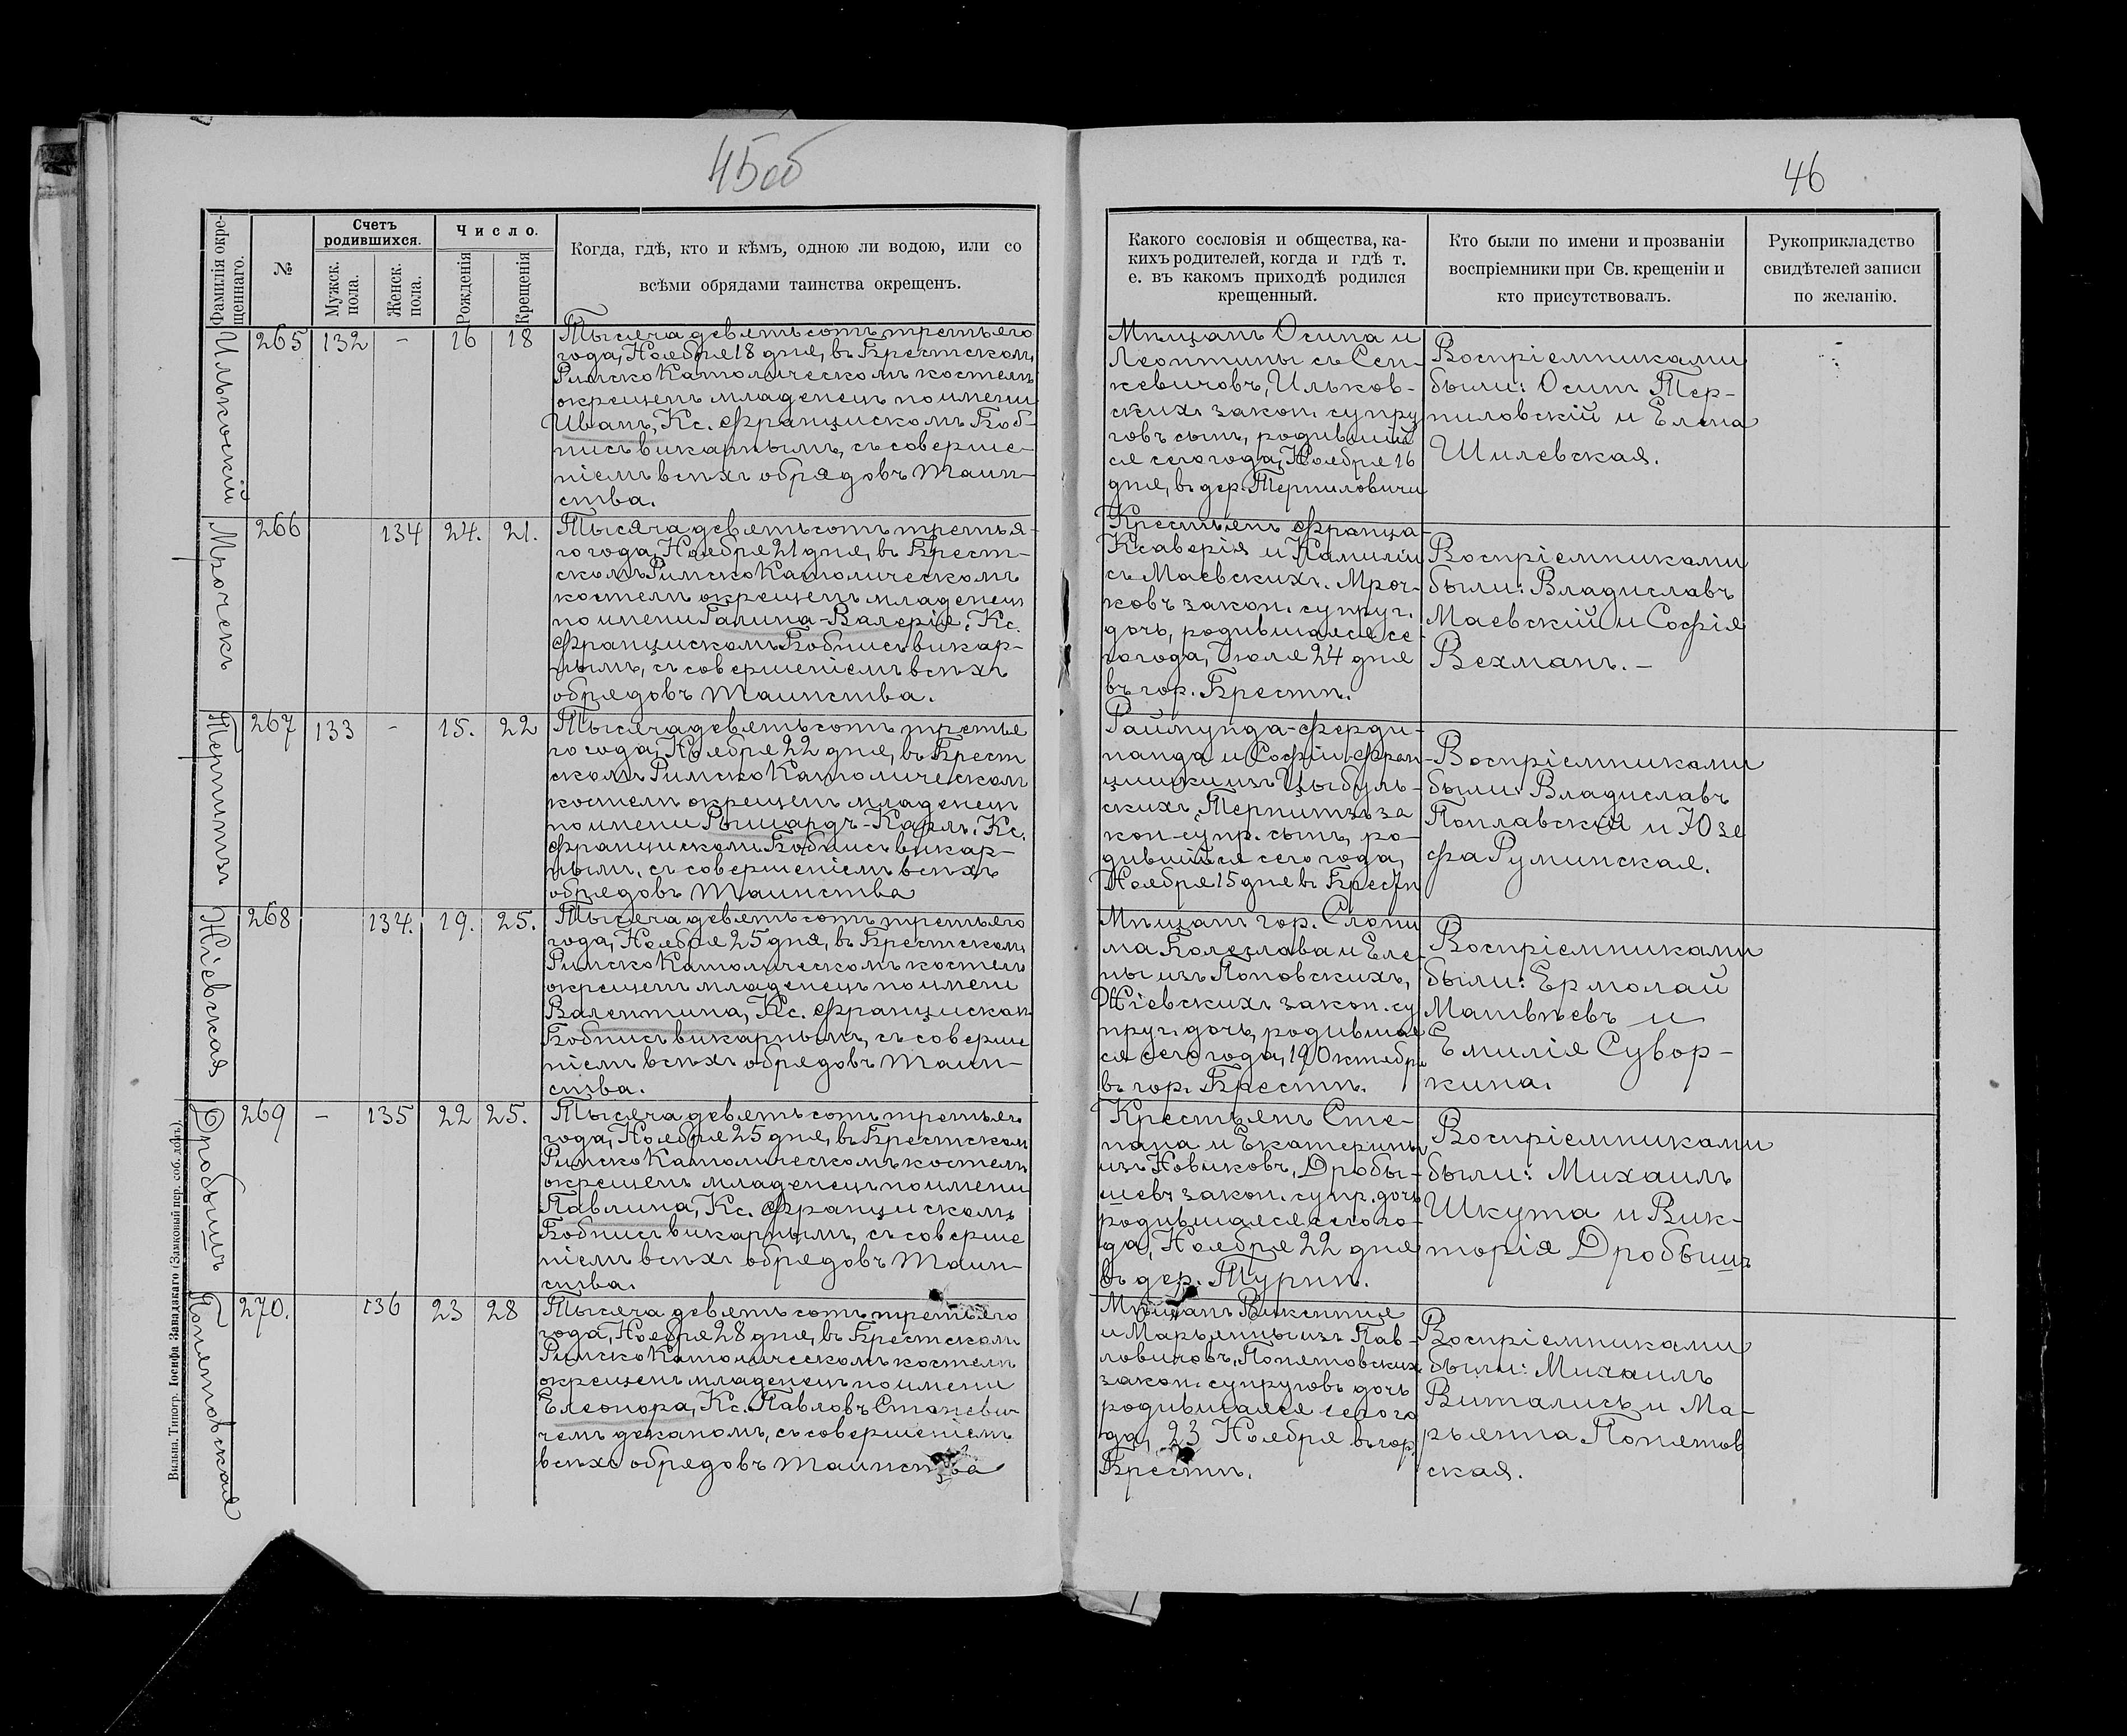 45об
46
Фамилія окре-
щеннаго.
№
Счетъ
родившихся.
Мужск.
пола.
Женск.
пола.
Число.
Рожденія
Крещенія
Когда, гдѣ, кто и кѣмъ, одною ли водою, или со
всѣми обрядами таинства окрещенъ.
Какого сословія и общества, ка-
кихъ родителей, когда и гдѣ т.
е. въ какомъ приходѣ родился
крещенный.
Кто были по имени и прозваніи
воспріемники при Св. крещеніи и
кто присутствовалъ.
Рукоприкладство
свидѣтелей записи
по желанію.
Ильковскій
265 132 - 16 18
Тысяча девятьсотъ третьяго
года, Ноября 18 дня, въ Брестскомъ
Римско Католическомъ костелѣ
окрещенъ младенецъ по имени
Иванъ, Кс. Францискомъ Боб-
нисъ викарнымъ, съ соверше-
ніемъ всѣхъ обрядовъ Таин-
ства.
Мѣщанъ Осипа и
Леонтины съ Сен-
кевичовъ, Ильков-
скихъ закон. супру
говъ сынъ, родившій
ся сего года, Ноября 16
дня, въ дер. Терпиловичи
Воспріемниками
были: Осипъ Тер-
пиловскій и Елена
Шилевская.
Мрочекъ
266 134 24. 21.
Тысяча девятьсотъ третья-
го года, Ноября 21 дня, въ Брест-
скомъ Римско Католическомъ
костелѣ окрещенъ младенец
по имени Галина-Валерія, Кс.
Францискомъ Бобнисъ викар-
нымъ, съ совершеніемъ всѣхъ
обрядовъ Таинства.
Крестьянъ Франца-
Ксаверія и Камиліи
съ Маевскихъ. Мроч-
ковъ закон. супруг.
дочь, родившаяся се
го года, Іюля 24 дня
въ гор. Брестѣ.
Воспріемниками
были: Владиславъ
Маевскій и Софія
Вехманъ. -
Терпитзъ
267 133 - 15. 22
Тысяча девятьсотъ третья
го года, Ноября 22 дня, въ Брест
скомъ Римско Католическом
костелѣ окрещенъ младенец
по имени Рышардъ-Карлъ, Кс.
Францискомъ Бобнисъ викар-
нымъ, съ совершеніемъ всѣхъ
обрядовъ Таинства
Раймунда-Ферди-
нанда и Софіи-Фран
цишки изъ Цыбуль-
скихъ, Терпитзъ за
кон. супр. сынъ, ро-
дившійся сего года,
Ноября 15 дня въ Брестѣ
Воспріемниками
были: Владиславъ
Поплавскій и Юзе
фа Руминская.
268 134. 19. 25.
Тысяча девятьсотъ третьяго
года, Ноября 25 дня, въ Брестскомъ
Римско Католическомъ костелѣ
окрещенъ младенецъ по имени
Валентина, Кс. Францискомъ
Бобнисъ викарнымъ, съ соверше
ніемъ всѣхъ обрядовъ Таин-
ства.
Мѣщанъ гор. Слони
ма Болеслава и Еле
ны изъ Поповскихъ,
закон. су
пруг. дочь, родившая
ся сего года, 19 Октября
въ гор. Брестѣ.
Воспріемниками
были: Ермолай
Матвѣевъ и
Емилія Сувор-
кина.
Дробышъ
269 - 135 22 25.
Тысяча девятьсотъ третьяго
года, Ноября 25 дня, въ Брестскомъ
Римско Католическомъ костелѣ
окрещенъ младенецъ по имени
Павлина, Кс. Францискомъ
Бобнисъ викарнымъ, съ соверше
ніемъ всѣхъ обрядовъ Таин-
ства.
Крестьянъ Сте-
пана и Екатерины
изъ Новиковъ, Дробы-
шевъ закон. супр. дочь
родившаяся сего го-
да, Ноября 22 дня
въ дер. Турнѣ.
Воспріемниками
были: Михаилъ
Шкута и Вик-
торія Дробышъ
Понятовская
270. 136 23 28
Тысяча девятьсотъ третьяго
года, Ноября 28 дня, въ Брестскомъ
Римско Католическомъ костелѣ
окрещенъ младенецъ по имени
Елеонора, Кс. Павловъ Станкевич
чемъ деканомъ, съ совершеніемъ
всѣхъ обрядовъ Таинства
Мѣщанъ Викентія
и Марьянны изъ Пав-
ловичовъ, Понятовскихъ
закон. супруговъ дочь
родившаяся сего го
да, 23 Ноября въ гор.
Брестѣ.
Воспріемниками
были: Михаилъ
Виталисъ и Ма-
рьянна Понятов
ская.
Вильна. Типогр. Іосифа Завадзкаго (Замковый пер. соб. домъ).